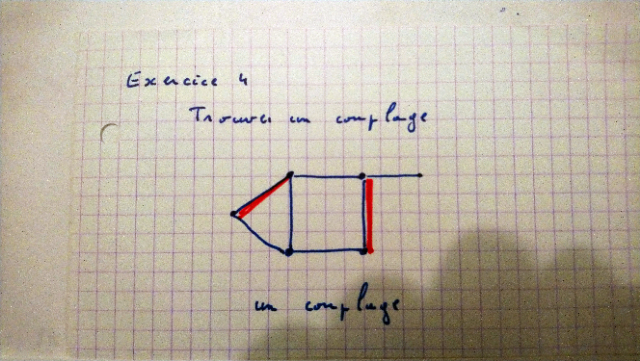 Exercice 4
Trouver un couplage
un couplage